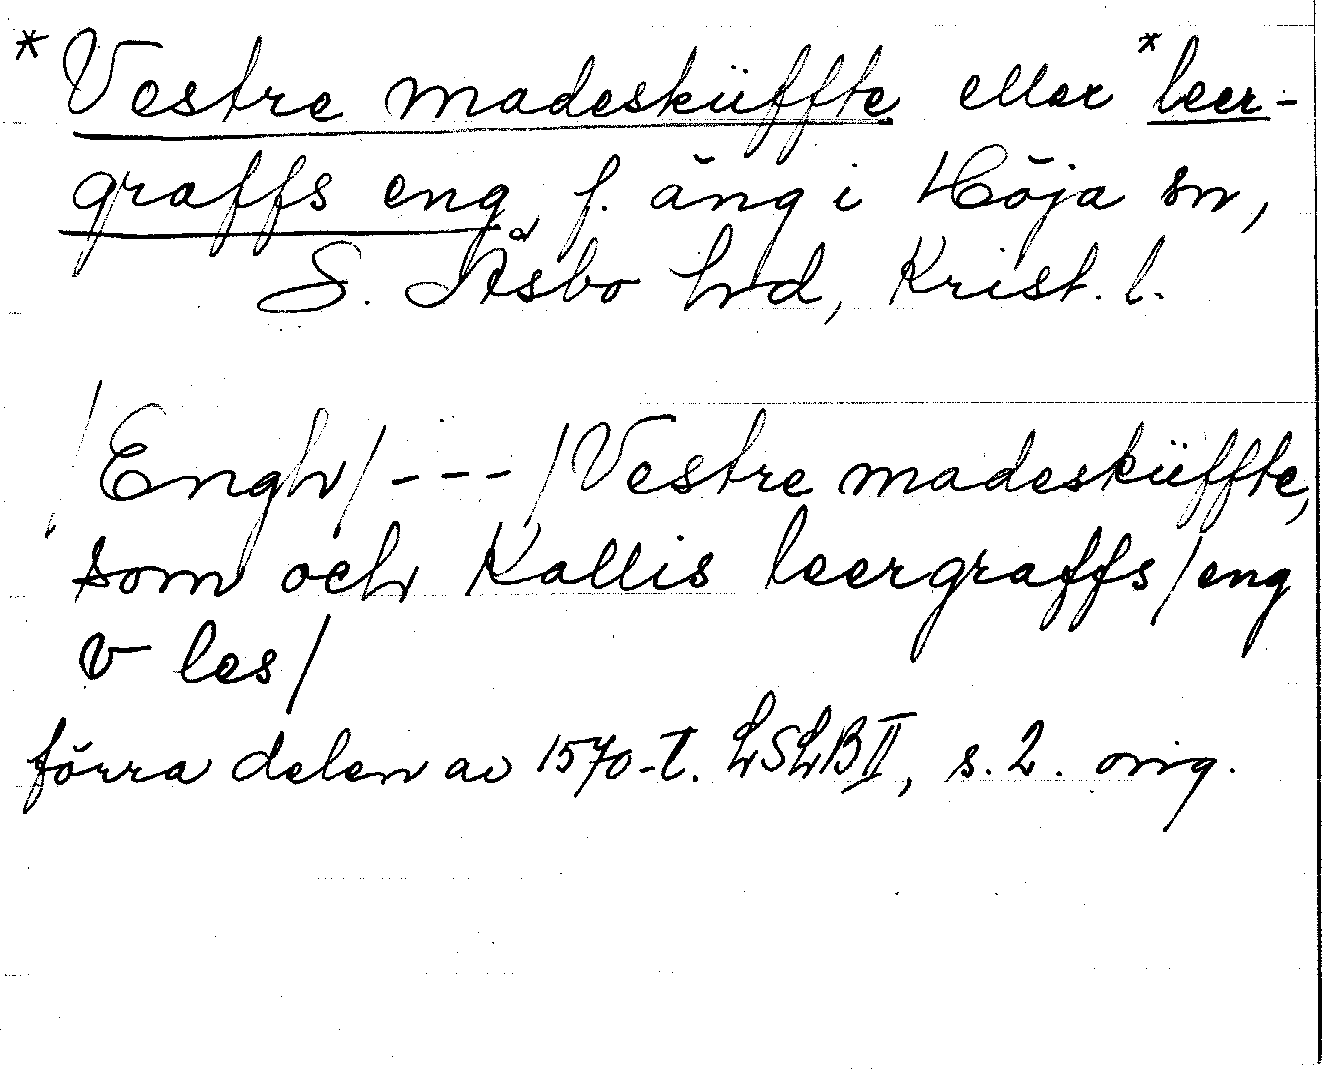 *Vestre madesküffte eller *leer-
graffs eng, f. äng i Höja sn,
S. Åsbo hd, Krist. l.
/Engh/ - - - /Vestre madesküffte,
som och Kallis leergraffs/eng
v les/
förra delen av 1570-t. LSLB II, s. 2. orig.